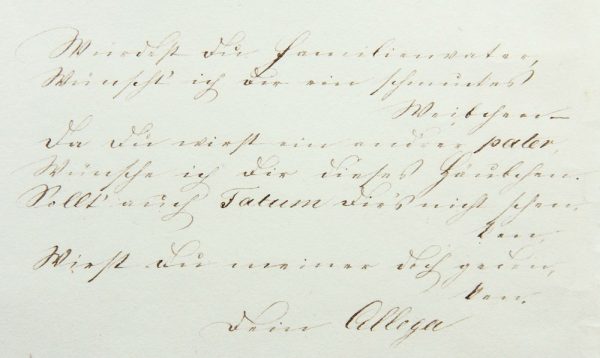 Würdest Du Familienvater,
Wünscht' ich Dir ein schmuckes
Weibchen –
Da Du wirst ein andrer pater,
Wünsche ich Dir dieses Häubchen.
Sollt' auch Fatum Dir's nicht schen-
ken,
Wirst Du meiner doch geden-
ken.
Dein Collega